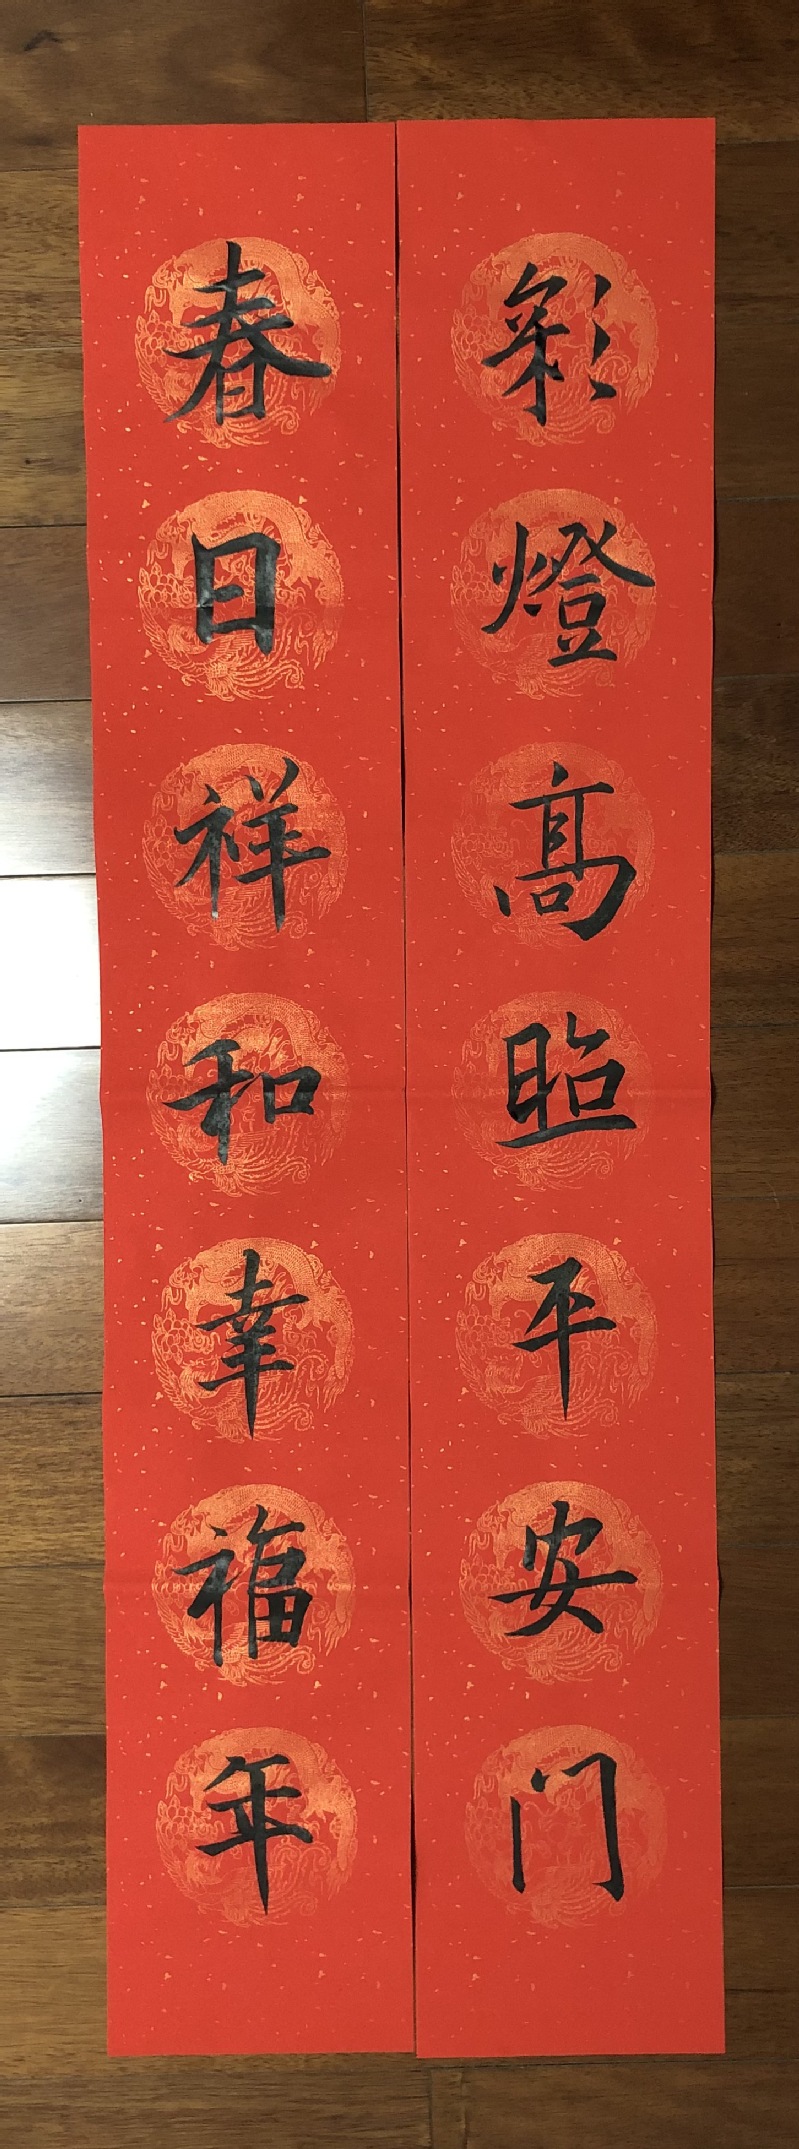 彩燈高照平安门
春日祥和幸福年